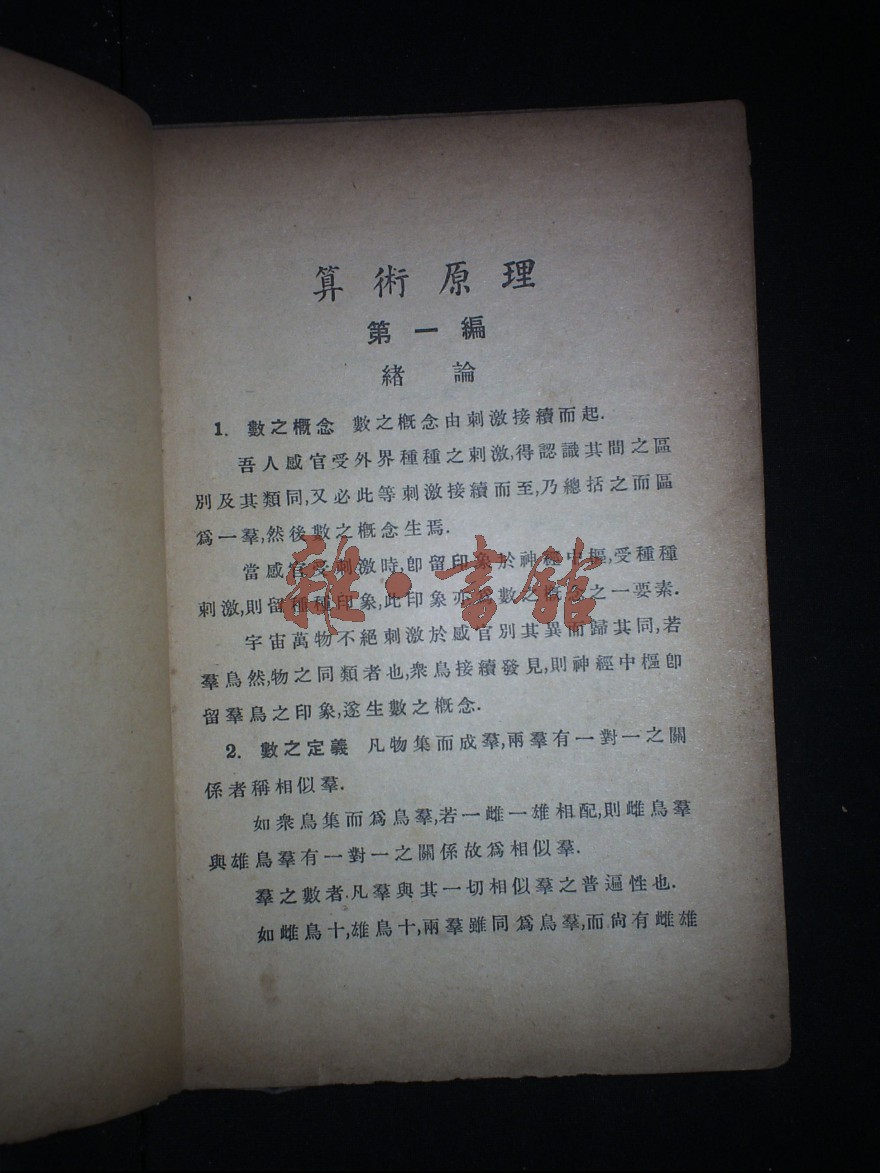 算術原理
第一編
緒論
1. 數之概念 數之概念由刺激接續而起.
吾人感官受外界種種之刺激,得認識其間之區
別及其類同,又必此等刺激接續而至,乃總括之而區
爲一羣,然後數之概念生焉.
當感官受刺激時,卽留印象於神經中樞,受種種
刺激,則留種種印象,此印象亦爲數之概念之一要素.
宇宙萬物不絕刺激於感官別其異而歸其同,若
羣鳥然,物之同類者也,衆鳥接續發見,則神經中樞卽
留羣鳥之印象,遂生數之概念.
2. 數之定義 凡物集而成羣,兩羣有一對一之關
係者稱相似羣.
如衆鳥集而爲鳥羣,若一雌一雄相配,則雌鳥羣
與雄鳥羣有一對一之關係故爲相似羣.
羣之數者.凡羣與其一切相似羣之普遍性也.
如雌鳥十,雄鳥十,兩羣雖同爲鳥羣,而尙有雌雄
雜·書館